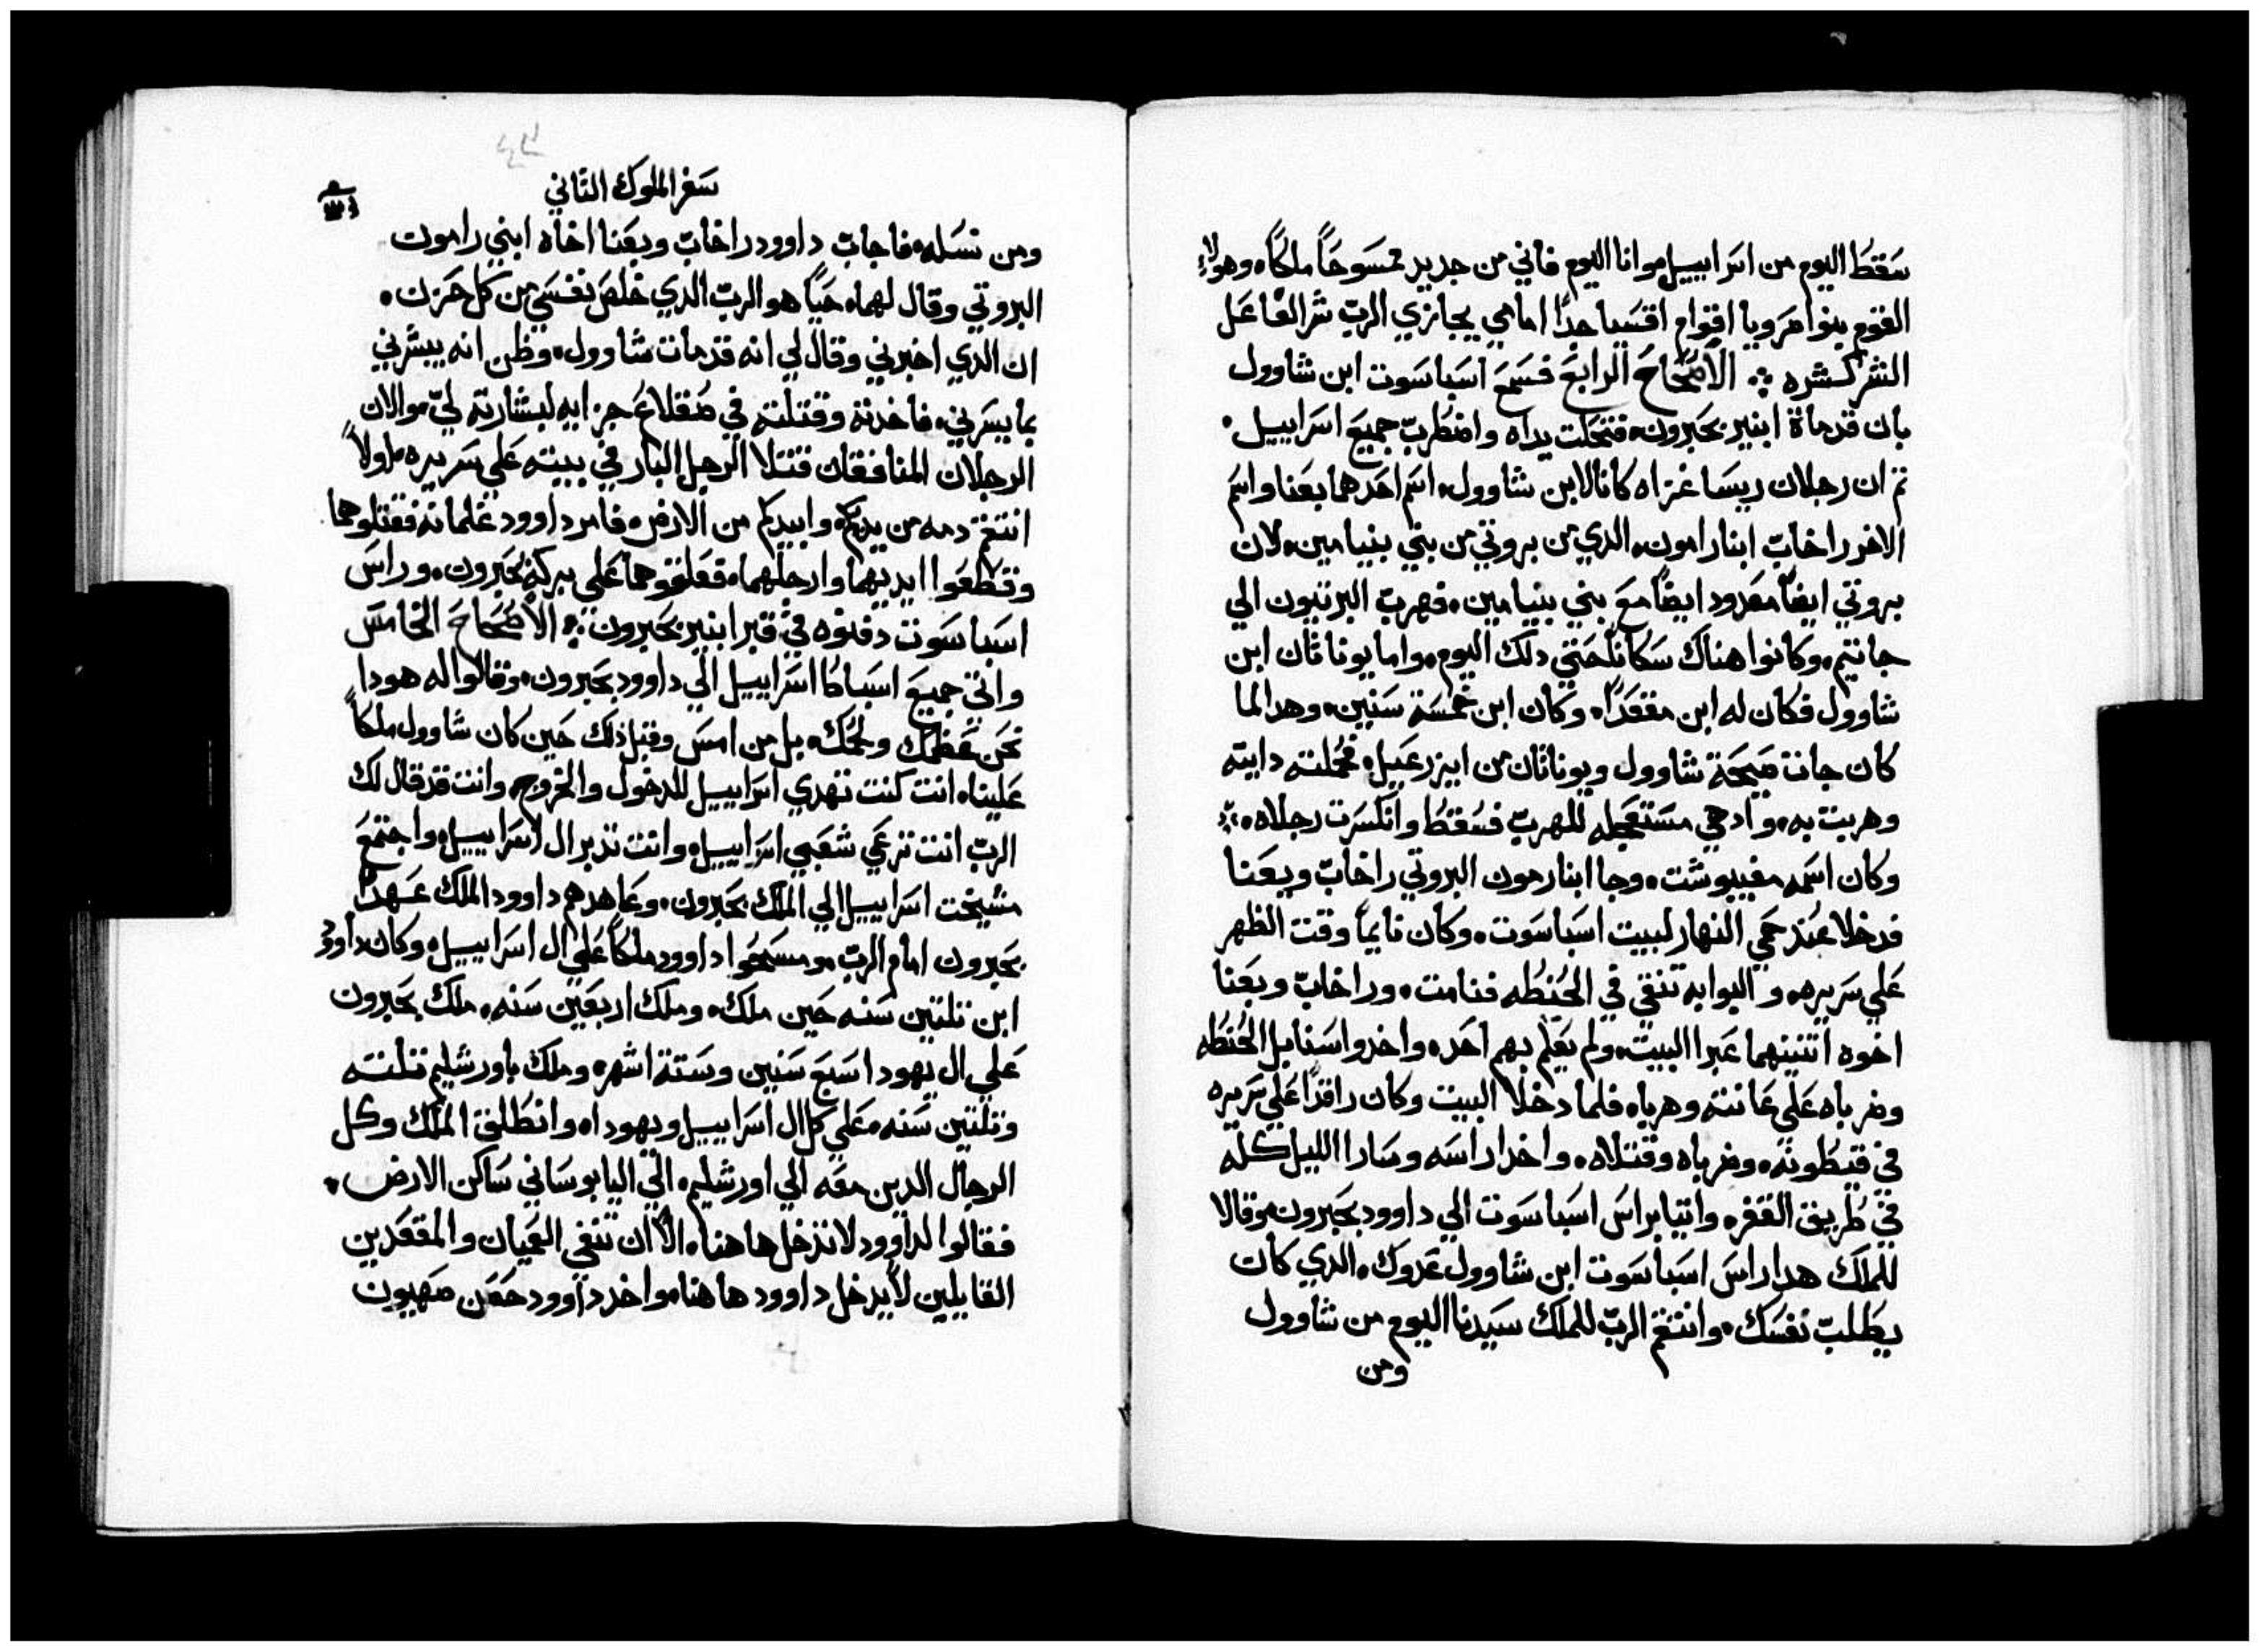 سقط اليوم من اسراييل وانا اليوم فاني من جديد ممسوحاً ملكاً وهولاء
القوم بنوا صرويا اقوام اقسيا جداً اما هي يجازي الرب شر الفاعل
الشر كشره الاصحاح الرابع فسمع اسباسوت ابن شاوول
بان قد ماة ابنير بحبرون فتحلت يداه واضطرب جميع اسراييل
تم ان رجلان ريسا غزاه كانا لابن شاوول اسم احدهما بعنا واسم
الاخر راخاب ابنا رامون الدي من بروتي من بني بنيامين لان
بروتي ايضاً معدود ايضاً مع بني بنيامين فهرب البرتيون الي
جانتيم وكانوا هناك سكاناً حتي دلك اليوم واما يوناتان ابن
شاوول فكان له ابن مقعداً وكان ابن خمسة سنين وهدا لما
كان جات صيحة شاوول ويوناتان من ايزرعيل فحملته دايته
وهربت به واد هي مستعجله للهرب فسقط وانكسرت رجلاه
وكان اسمه مفيبوشت وجا ابنا رمون البروتي راخاب وبعنا
فدخلا عند حمي النهار لبيت اسباسوت وكان نايماً وقت الظهر
علي سريره والبوابه تنقي في الحنطه فنامت وراخاب وبعنا
اخوه اتنينهما عبرا البيت ولم يعلم بهم احد واخدوا سنابل الحنطه
وضرباه علي عانته وهربا فلما دخلا البيت وكان راقداً علي سريره
في قيطونه وضرباه وقتلاه واخدا راسه وسارا الليل كله
في طريق القفره واتيا براس اسباسوت الي داوود بحبرون وقالا
للملك هدا راس اسباسوت ابن شاوول عدوك الدي كان
يطلب نفسك وانتقم الرب للملك سيدنا اليوم من شاوول
ومن
سفر الملوك التاني
ومن نسله فاجاب داوود راخاب وبعنا اخاه ابني رامون
البروتي وقال لهما حياً هو الرب الدي خلص نفسي من كل حزن
ان الدي اخبرني وقال لي انه قد مات شاوول وظن انه يبشرني
بما يسرني فاخدته وقتلته في صقلاغ جزايه لبشارته لي والان
الرجلان المنافقان قتلا الرجل البار في بيته علي سريره اولاً
انتقم دمه من يديكم وابيدكم من الارض فامر داوود غلمانه فقتلوهما
وقطعوا ايديهما وارجلهما فعلقوهما علي بركة بحبرون وراس
اسباسوت دفنوه في قبر ابنير بحبرون الاصحاح الخامس
واتي جميع اسباط اسراييل الي داوود بحبرون وقالوا له هودا
نحن عظمك ولحمك بل من امس وقبل ذلك حين كان شاوول ملكاً
علينا انت كنت تهدي اسراييل للدخول والخروج وانت قد قال لك
الرب انت ترعي شعبي اسراييل وانت تدبر ال اسراييل واجتمع
مشيخت اسراييل الي الملك بحبرون وعاهدهم داوود الملك عهداً
بحبرون امام الرب ومسحوا داوود ملكاً علي ال اسراييل وكان داوود
ابن تلتين سنه حين ملك وملك اربعين سنه ملك بحبرون
علي ال يهودا سبع سنين وستة اشهر وملك باورشليم تلته
وتلتين سنه علي كل ال اسراييل ويهودا وانطلق الملك وكل
الرجال الدين معه الي اورشليم الي اليابوساني ساكن الارض
فقالوا لداوود لا تدخل هاهنا الا ان تنفي العميان والمقعدين
القايلين لا يدخل داوود هاهنا واخد داوود حصن صهيون